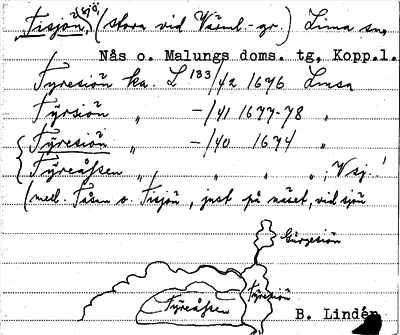 "Fisjön", (stora vid Värml.-gr.) Lima sn,
Nås o. Malungs doms. tg, Kopp.l.
Fyresiön ka. L 133/42 1676 Limsa
Fyrsiön " —/41 1677-78 "
Fyresiön " —/40 1674 "
Fyreåssen " " " " ; V sj.!
(mell. Fåsen o. Fisjön, just på näset, vid sjön
Görgesiön
Fyresiön
Fyreåssen
B. Lindén